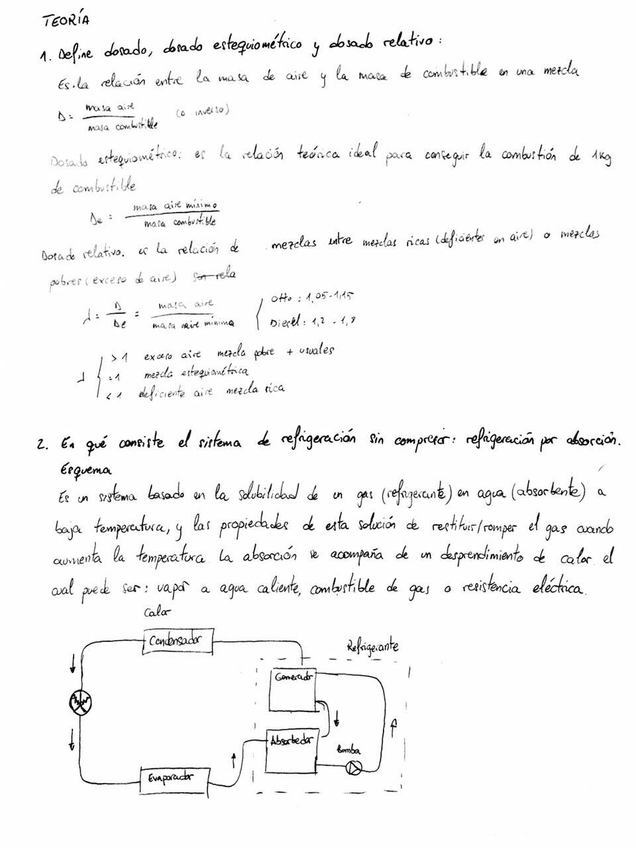 TEORÍA
1. Define dosado, dosado estequiométrico y dosado relativo:
Es la relación entre la masa de aire y la masa de combustible en una mezcla
D = masa aire / masa combustible (o inverso)
Dosado estequiométrico: es la relación teórica ideal para conseguir la combustión de 1kg
de combustible
De = masa aire mínimo / masa combustible
Dosado relativo. es la relación de mezclas entre mezclas ricas (deficientes en aire) o mezclas
pobres (exceso de aire) rela
λ = D / De = masa aire / masa aire mínima { Otto: 1,05-1,15
Diesel: 1,2 - 1,8
λ { > 1 exceso aire mezcla pobre + usuales
= 1 mezcla estequiométrica
< 1 deficiente aire mezcla rica
2. En qué consiste el sistema de refrigeración sin compresor: refrigeración por absorción.
Esquema
Es un sistema basado en la solubilidad de un gas (refrigerante) en agua (absorbente) a
baja temperatura, y las propiedades de esta solución de restituir/romper el gas cuando
aumenta la temperatura La absorción se acompaña de un desprendimiento de calor el
cual puede ser: vapor a agua caliente, combustible de gas o resistencia eléctrica.
Calor
Condensador
Refrigerante
Generador
Absorbedor
bomba
Evaporador